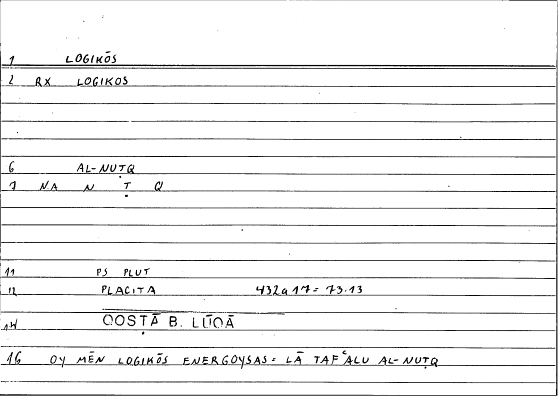 1 LOGIKŌS
2 RX LOGIKOS
6 AL-NUṬQ
7 NA N Ṭ Q
11 PS PLUT
12 PLACITA 432a17 = 73.13
14 QOSṬĀ B. LŪQĀ
16 OY MĒN LOGIKŌS ENERGOYSAS = LĀ TAFʿALU AL-NUṬQ